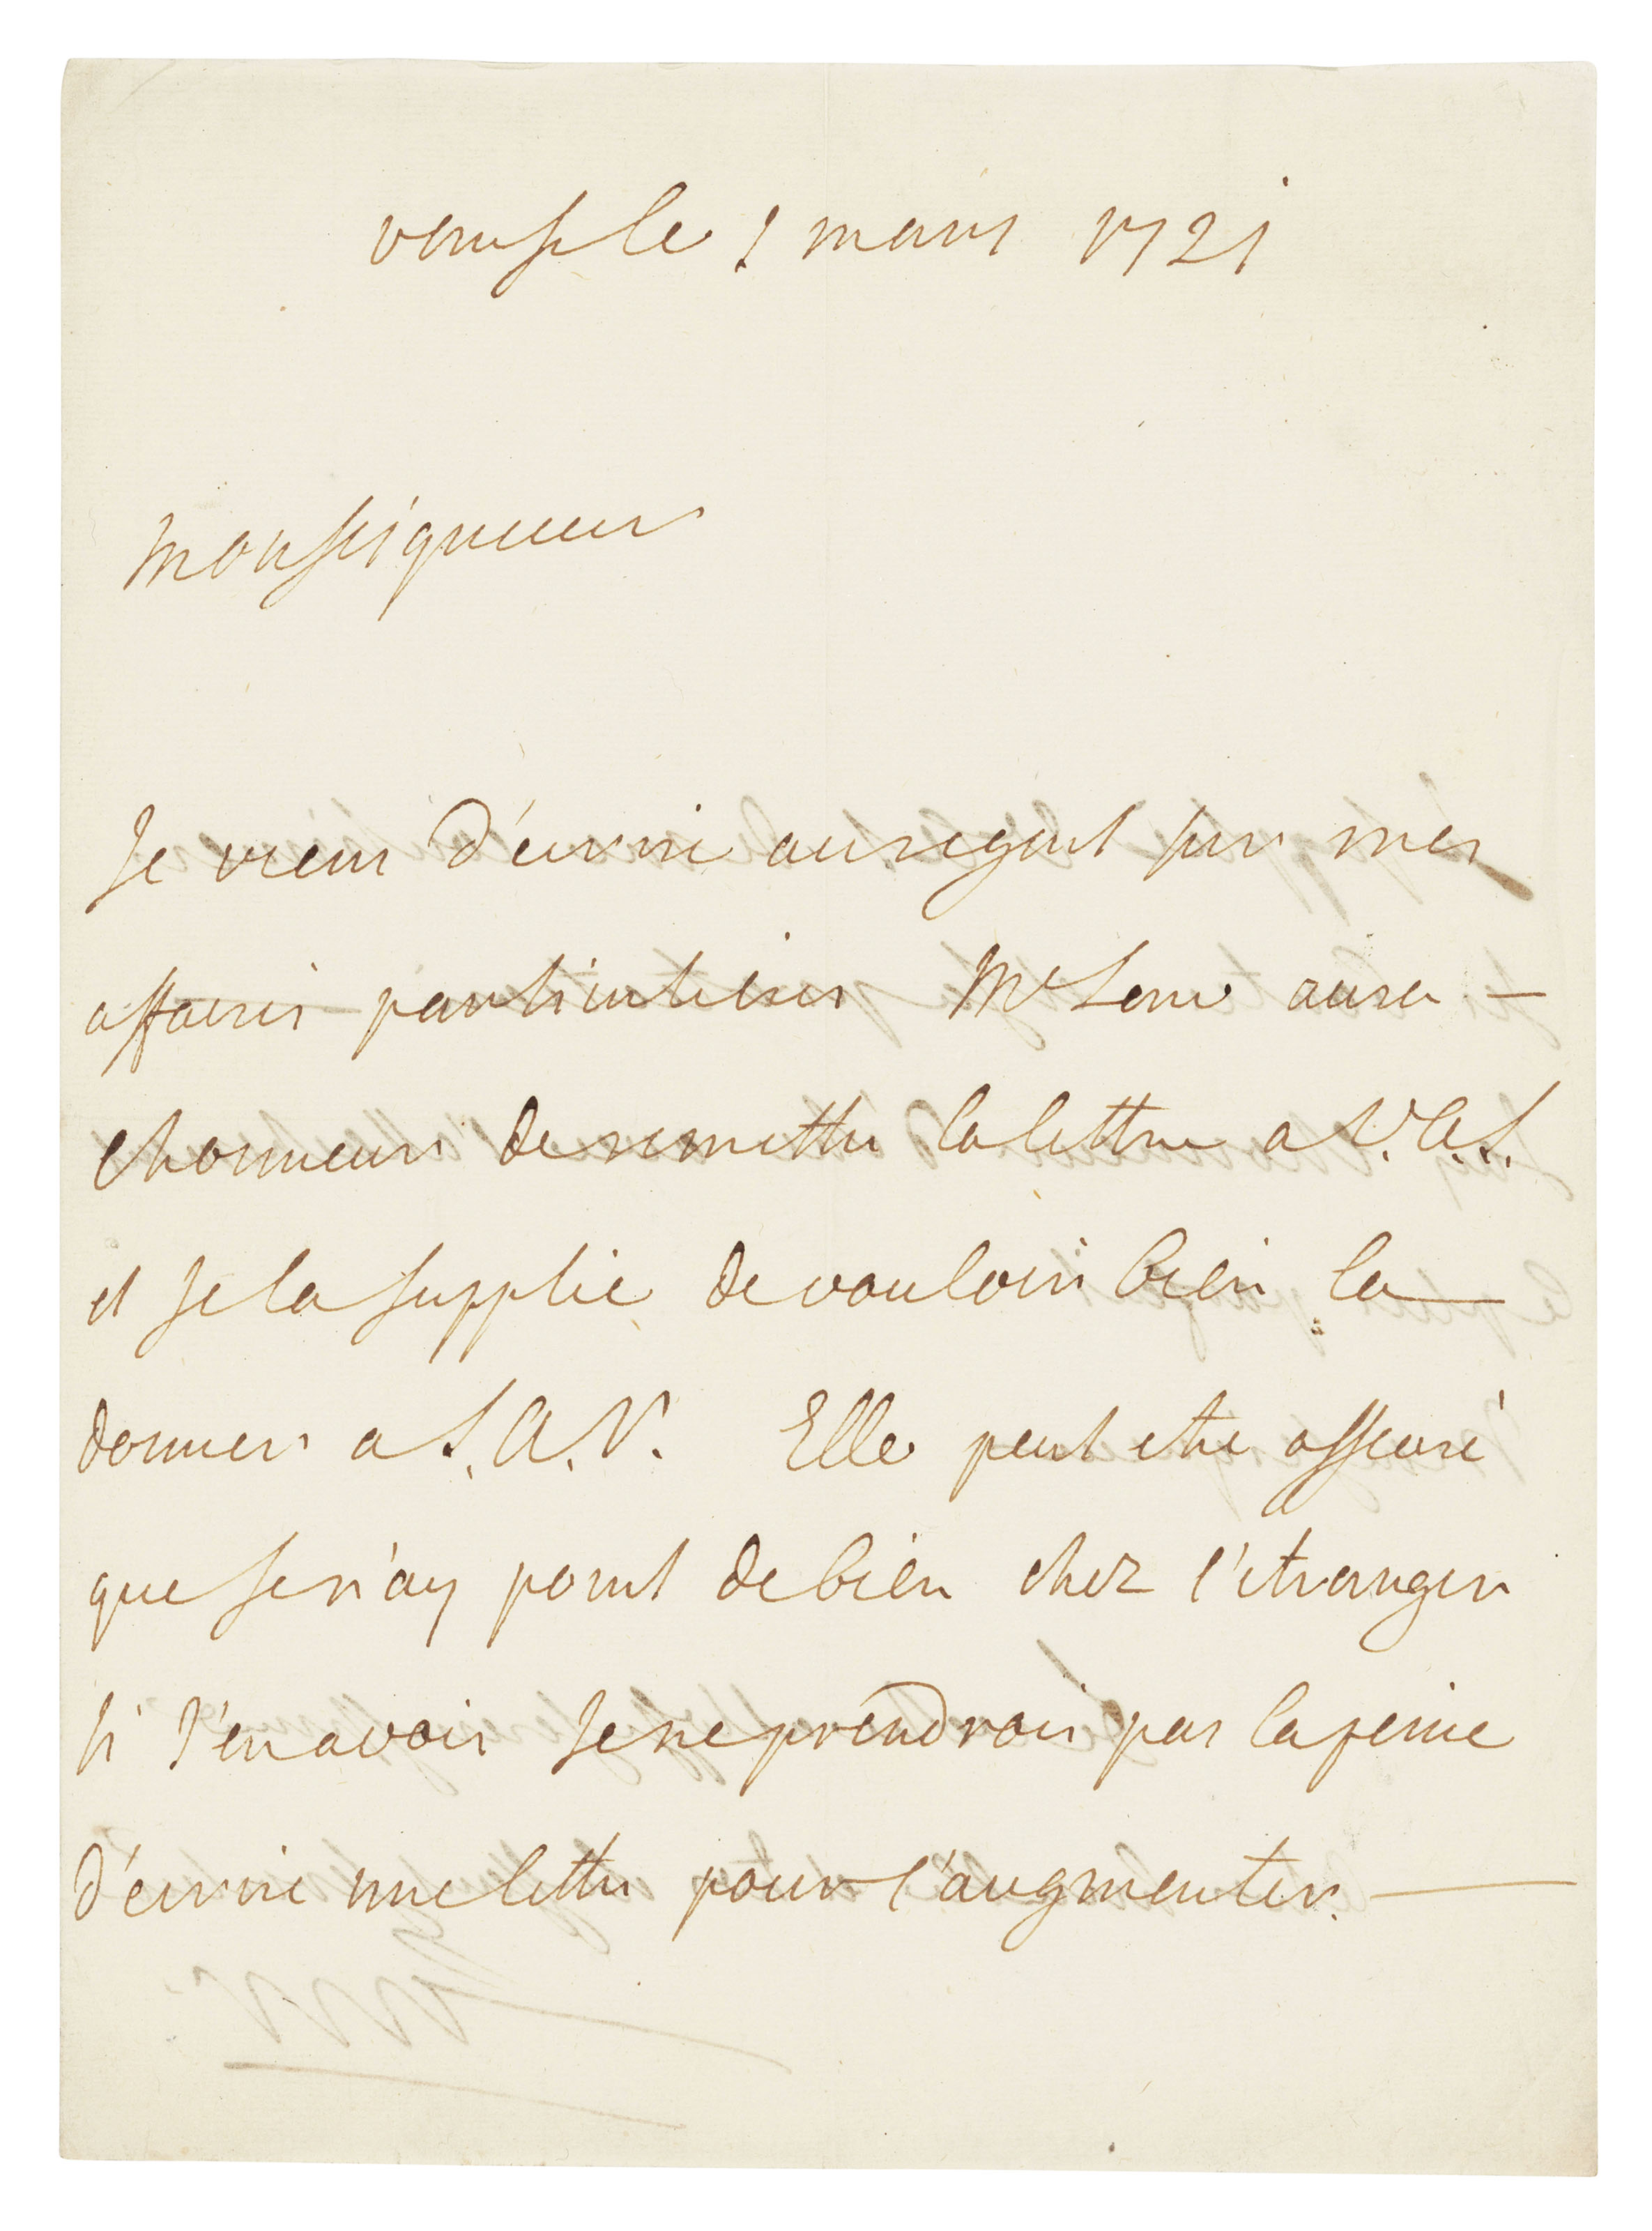 venise le 1 mars 1721
Monseigneur
Je viens d'ecrire au regent sur mes
affaires particulieres Mr Lew aura —
l'honneur de remettre la lettre a V.A.S.
et Je la supplie de vouloir bien la —
donner a S.A.R. Elle peut etre asseuré
que Je n'ay point de bien chez l'étranger
si J'en avois Je ne prendrois pas la peine
d'ecrire une lettre pour l'augmenter. —